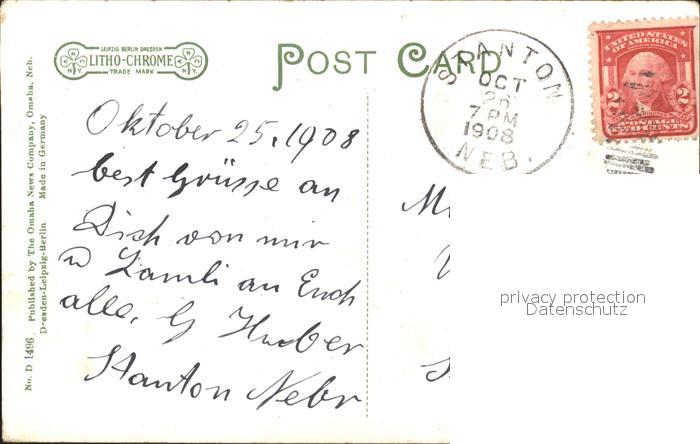 LEIPZIG BERLIN DRESDEN
LITHO-CHROME
TRADE MARK
N.Y.
N.Y.
POST CARD
STANTON
OCT
26
7 PM
1908
NEB.
UNITED STATES
OF AMERICA
2 2
POSTAGE
TWO CENTS
Oktober 25, 1908
best Grüsse an
Dich von mir
u Lamli an Euch
alle, G Huber
Stanton Nebr
privacy protection
Datenschutz
No. D 1496. Published by The Omaha News Company, Omaha, Neb.
Dresden-Leipzig-Berlin Made in Germany